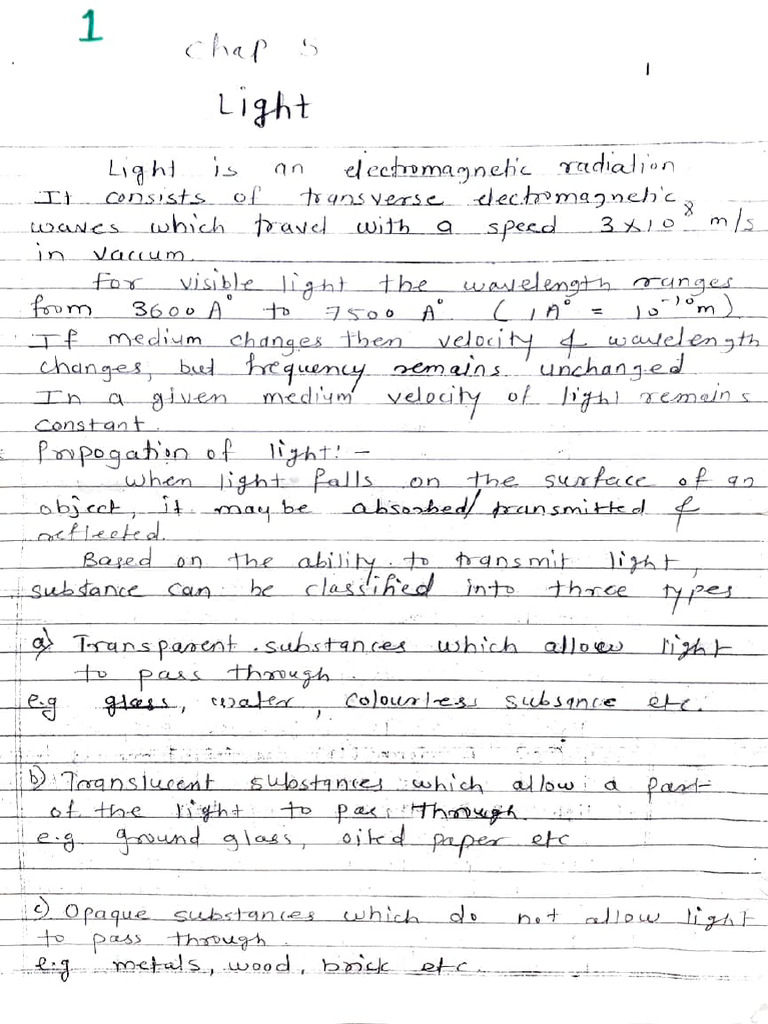 1
Chap 5
1
Light
Light is an electromagnetic radiation
It consists of transverse electromagnetic
waves which travel with a speed 3×10⁸ m/s
in vaccum.
For visible light the wavelength ranges
from 3600 A° to 7500 A° (1A° = 10⁻¹⁰m)
If medium changes then velocity & wavelength
changes, but frequency remains unchanged
In a given medium velocity of light remains
constant.
Propogation of light:-
When light falls on the surface of an
object, it may be absorbed/transmitted &
reflected.
Based on the ability to transmit light,
substance can be classified into three types
a) Transparent substances which allow light
to pass through.
e.g glass, water, colourless subsance etc.
b) Translucent substances which allow a part
of the light to pass through.
e.g. ground glass, oiled paper etc
c) Opaque substances which do not allow light
to pass through.
e.g metals, wood, brick etc.